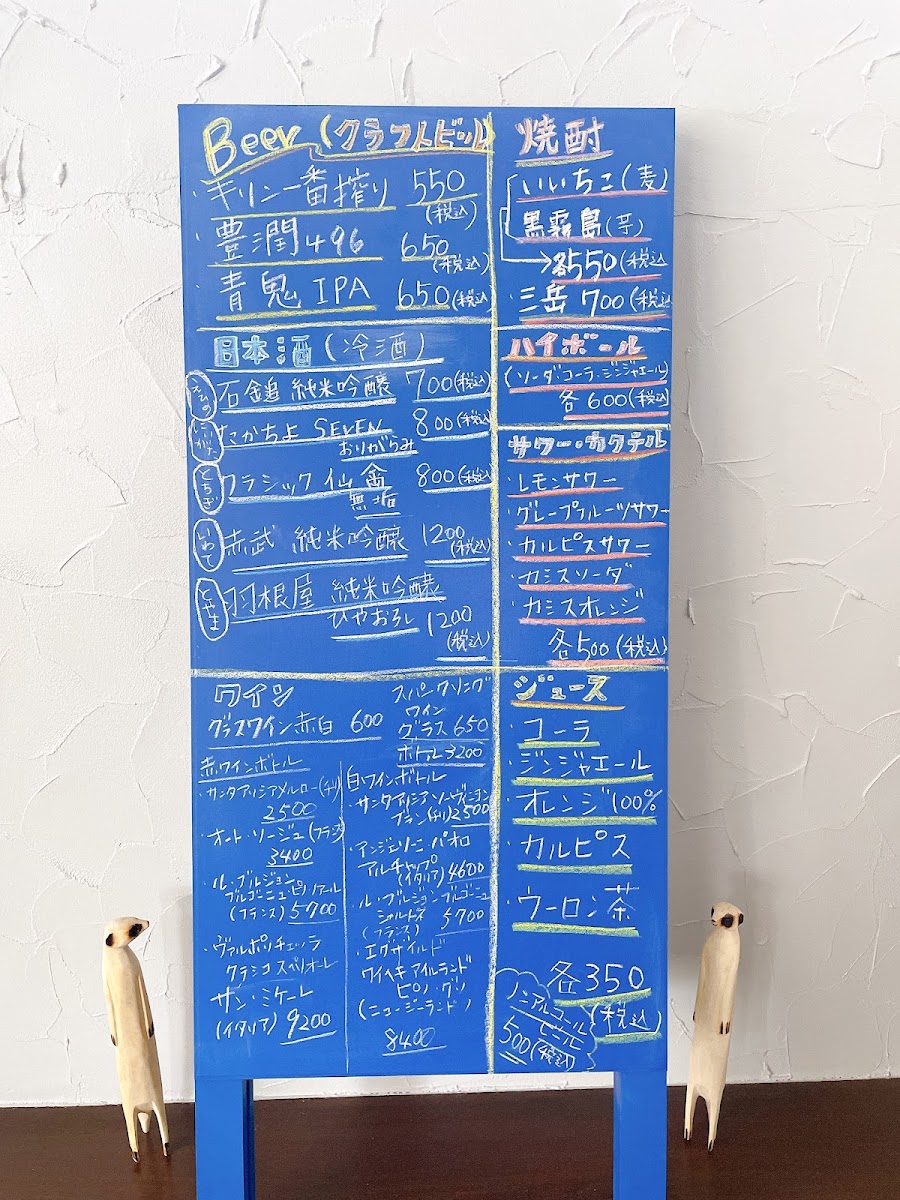 Beer (クラフトビール
・キリン一番搾り 550
(税込)
・豊潤496 650
(税込)
・青鬼 IPA 650(税込
日本酒(冷酒)
えひめ 石鎚 純米吟醸 700(税込)
にいがた たかちよ SEVEN 800(税込)
おりがらみ
とちぎ クラシック仙禽 800(税込
無垢
いわて 赤武 純米吟醸 1200
(税込)
とやま 羽根屋 純米吟醸
ひやおろし 1200
(税込)
焼酎
いいちこ(麦)
黒霧島(芋)
→各550(税込
・三岳 700(税込
ハイボール
(ソーダ・コーラ・ジンジャエール)
各600(税込)
サワー・カクテル
・レモンサワー
・グレープフルーツサワー
・カルピスサワー
・カシスソーダ
・カシスオレンジ
各500(税込)
ワイン
グラスワイン赤白 600
スパークリング
ワイン
グラス 650
ボトル 3200
赤ワインボトル
・サンタアリシアメルロー(チリ)
2500
・オート・ソージュ(フランス)
3400
・ル・ブルジョン・
ブルゴーニュピノノワール
(フランス) 5700
・ヴァルポリチェッラ
クラシコ スペリオーレ
サン・ミケーレ
(イタリア) 9200
白ワインボトル
・サンタアリシアソーヴィニヨン
ブラン(チリ)2500
・アンジェリーニ・パオロ
アルチャップ
(イタリア) 4600
・ル・ブルジョン・ブルゴーニュ
シャルドネ 5700
(フランス)
・エグザイルド
ワイヘキアイルランド
ピノ・グリ
(ニュージーランド)
8400
ジュース
・コーラ
・ジンジャエール
・オレンジ100%
・カルピス
・ウーロン茶
各350
(税込)
ノンアルコール
ビール
500(税込)